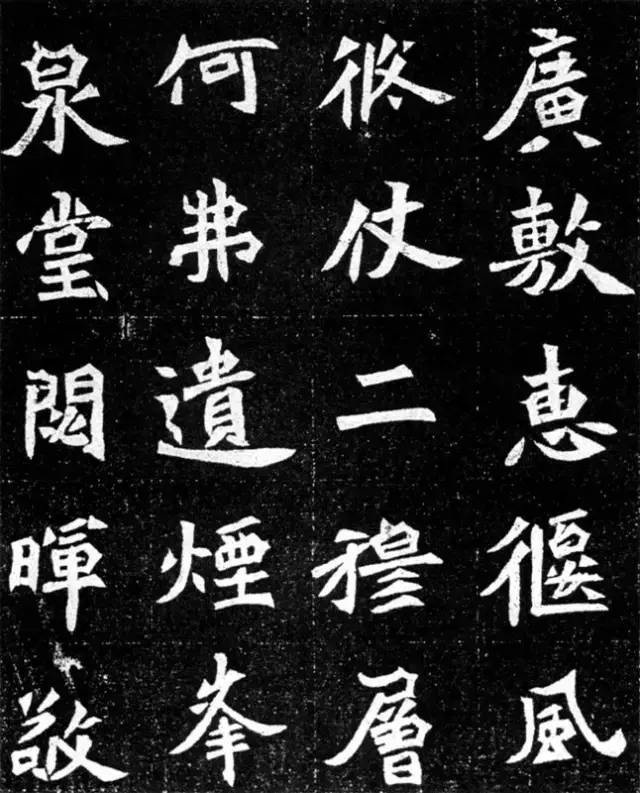 廣敷恵偃風
攸仗二穆層
何弗遺煙峯
泉堂閟暉敬